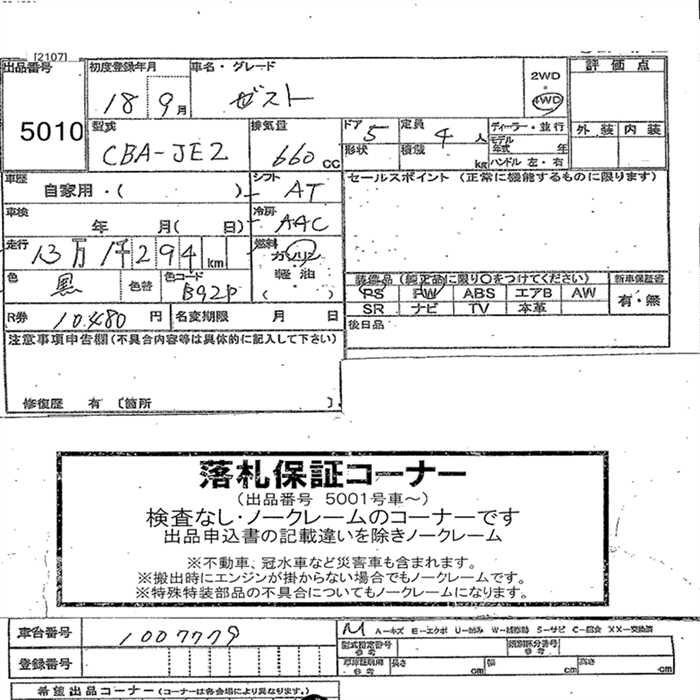 [2107]
出品番号 初度登録年月 車名・グレード 2WD 評価点
5010 18 9月 ゼスト 4WD
型式 排気量 ドア 定員 ディーラー・並行 外装 内装
CBA-JE2 660cc 5 4人 モデル年式 年
形状 積載 kg ハンドル 左・右
車歴 自家用・( ) シフト AT セールスポイント (正常に機能するものに限ります)
車検 年 月( 日) 冷房 AAC
走行 13万1千294km 燃料 ガソリン
軽油
色 黒 色替 色コード B92P ( )
装備品 (純正品に限り○をつけてください) 新車保証書
PS PW ABS エアB AW 有・無
SR ナビ TV 本革
R券 10480円 名変期限 月 日 後日品
注意事項申告欄(不具合内容等は具体的に記入して下さい)
修復歴 有 〔箇所 〕
落札保証コーナー
(出品番号 5001号車~)
検査なし・ノークレームのコーナーです
出品申込書の記載違いを除きノークレーム
※不動車、冠水車など災害車も含まれます。
※搬出時にエンジンが掛からない場合でもノークレームです。
※特殊特装部品の不具合についてもノークレームになります。
車台番号 1007779 A-キズ E-エクボ U-凹み W-補修跡 S-サビ C-腐食 XX-交換済
型式指定番号 参考 類別区分番号 参考
登録番号 参考 長さ cm 幅 cm 高さ cm
希望出品コーナー (コーナーは各会場により異なります。)